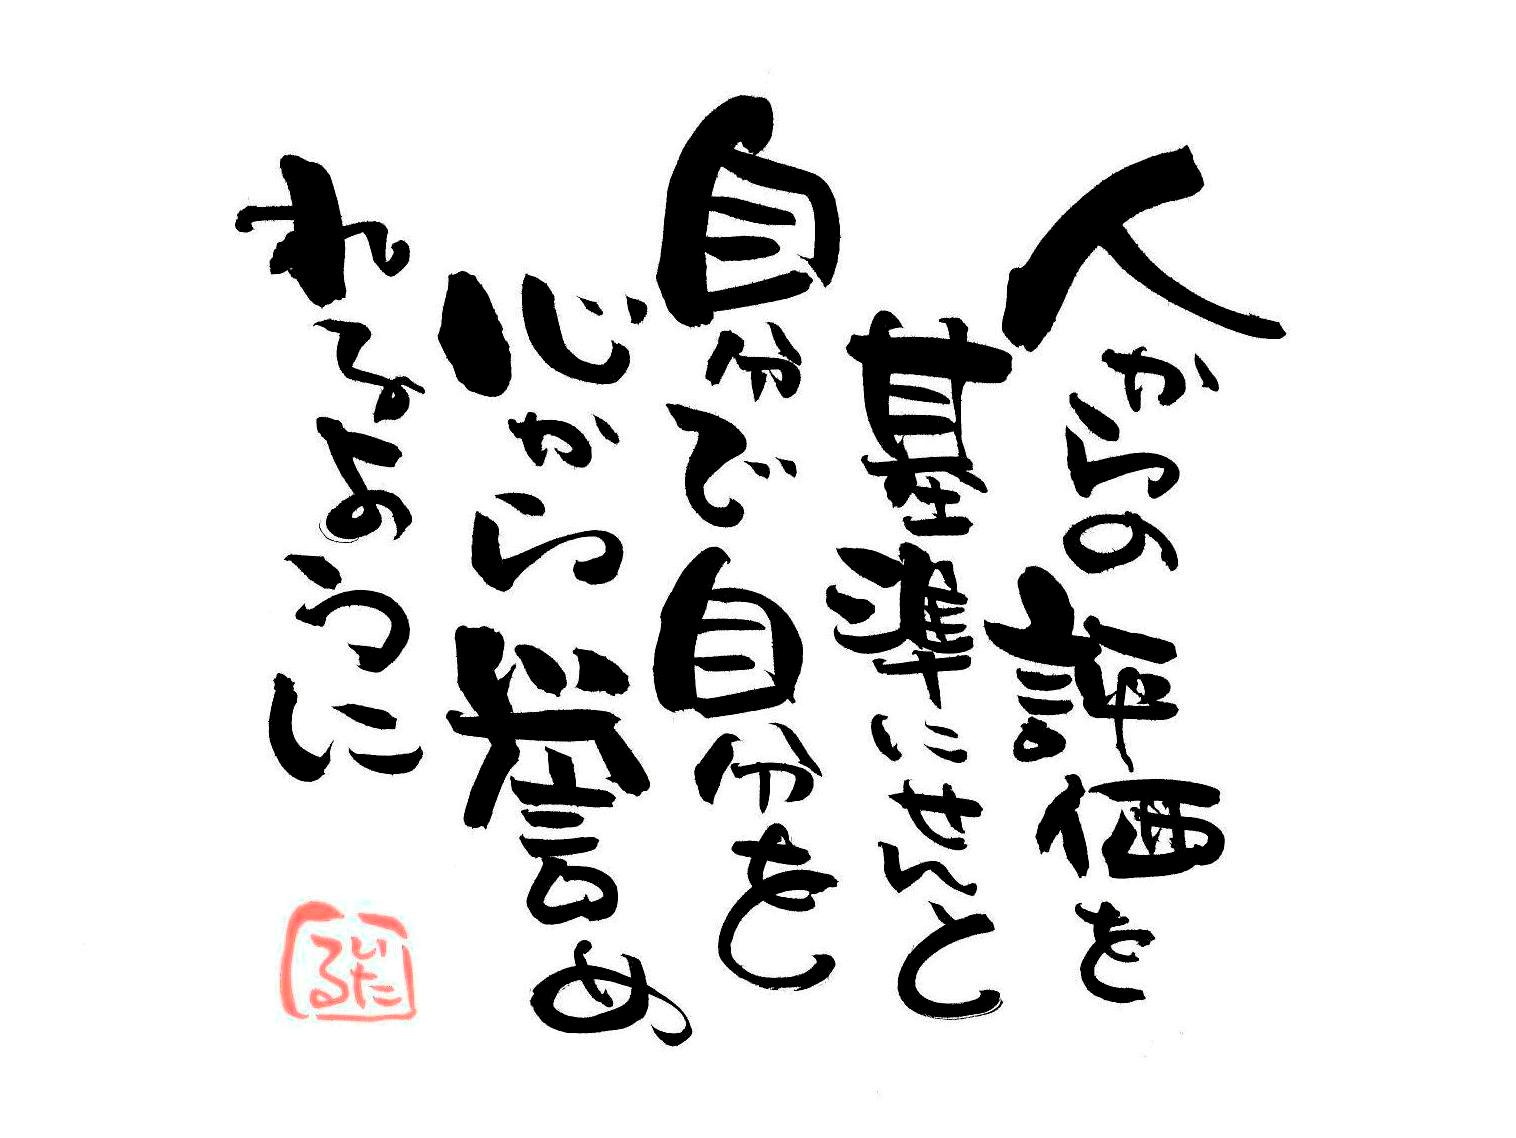 人からの評価を
基準にせんと
自分で自分を
心から誉め
れるように
いたる